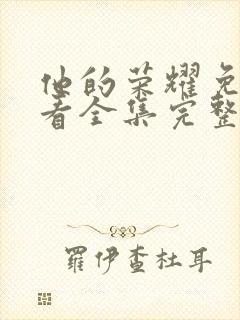 他的荣耀免
看全集完整
羅伊查杜耳